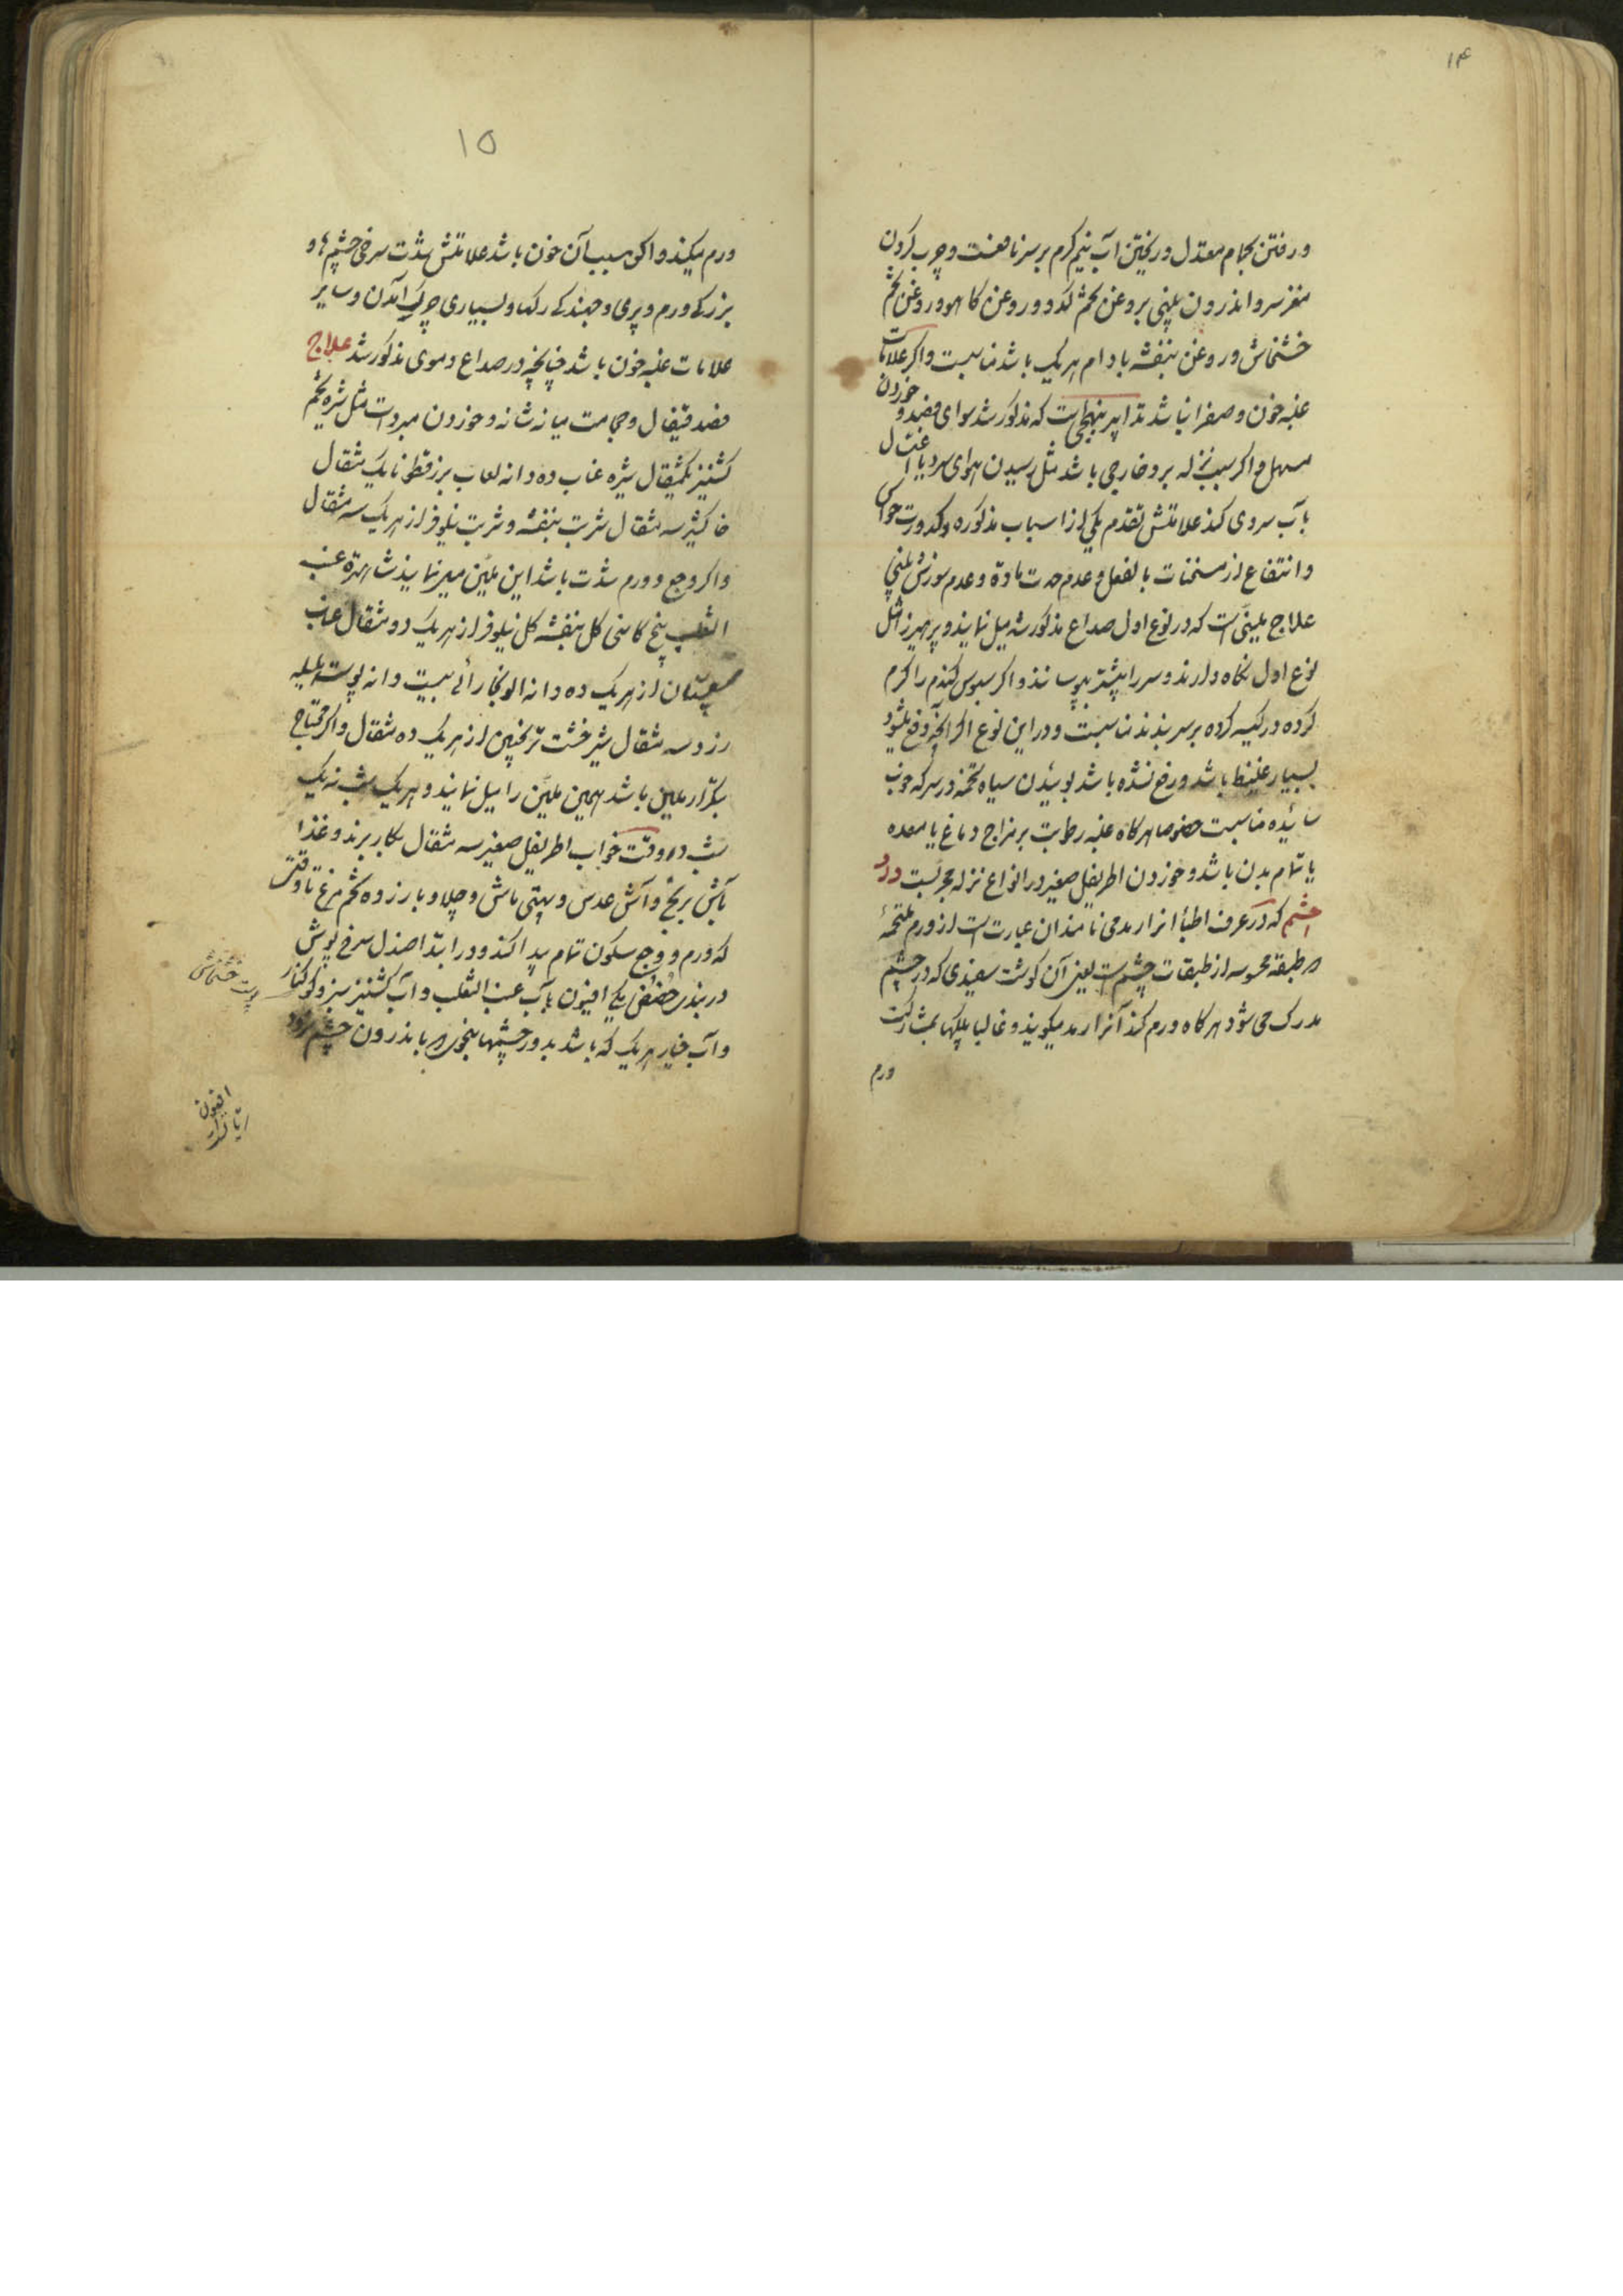 ۱۴
و رفتن بحمام معتدل و ریختن آب نیم گرم بر سر نافعست و چرب کردن
مغز سر و اندرون بینی بروغن تخم کدو و روغن کاهو و روغن تخم
خشخاش و روغن بنفشه بادام هر یک باشد مناسبست و اکر علامات
غلبه خون و صفرا نباشد تدابیر بنهجی است که مذکور شد سوای فصد و خوردن
مسهل و اکر سبب نزله برد خارجی باشد مثل رسیدن هوای سرد یا اغتسال
بآب سردی کند علامتش تقدم یکی از اسباب مذکوره و کدورت حواس
و انتفاع از مسخنات بالفعل و عدم حدت ماده و عدم سوزش بینی
علاج ملینی است که در نوع اول صداع مذکور شد میل نمایند و پرهیز مثل
نوع اول نکاه دارند و سر را بیشتر بپوسانند و اکر سبوس کندم را کرم
کرده در کیسه کرده بر سر بندند مناسبست و در این نوع اکر آنچه دفع میشود
بسیار غلیظ باشد و رفع نشده باشد بوئیدن سیاه تخمه در سرکه خوب
سائیده مناسبست خصوصا هرکاه غلبه رطوبت بر مزاج دماغ یا معده
یا تمام بدن باشد و خوردن اطریفل صغیر در انواع نزله مجربست درد
چشم که در عرف اطبا انرا رمد می نامند ان عبارت است از ورم ملتحمه
طبقه محسوسه از طبقات چشم است یعنی آن کوشت سفیدی که در چشم
مدرک می شود هرکاه ورم کند آنرا رمد میکویند و غالبا پلکها بمشارکت
ورم
۱۵
ورم میکند و اکر سبب آن خون باشد علامتش شدت سرخی چشم ها و
بزرکی ورم و پری و جهندکی رکها و بسیاری چرک آمدن و سایر
علامات غلبه خون باشد چنانچه در صداع دموی مذکور شد علاج
فصد قیفال و حجامت میانه شانه و خوردن مبردات مثل شیره تخم
کشنیز یکمثقال شیره عناب ده دانه لعاب بزرقطونا یک مثقال
خاکشیر سه مثقال شربت بنفشه و شربت نیلوفر از هر یک سه مثقال
و اکر وجع و ورم شدت باشد این ملین میر نمایند شاهتره عنب
الثعلب بیخ کاسنی کل بنفشه کل نیلوفر از هر یک دو مثقال عناب
سپستان از هر یک ده دانه الو بخارائی بیست دانه پوست هلیله
زرد سه مثقال شیر خشت ترنجبین از هر یک ده مثقال و اکر محتاج
بتکرار ملین باشد همین ملین را میل نمایند و هر یک شب نه یک
شب در وقت خواب اطریفل صغیر سه مثقال بکار برند و غذا
آش برنج و آش عدس و بپتی ماش و چلاو با زرده تخم مرغ تا وقتی
که ورم و وجع سکون تمام پیدا کند و در ابتدا صندل سرخ بوش
دربندی حضض یکی افیون بآب عنب الثعلب و آب کشنیز سبز و کوکنار
و آب خیار هر یک که باشد بدور چشمها بنحوی که باندرون چشم نرود
پوست خشخاش
افیون